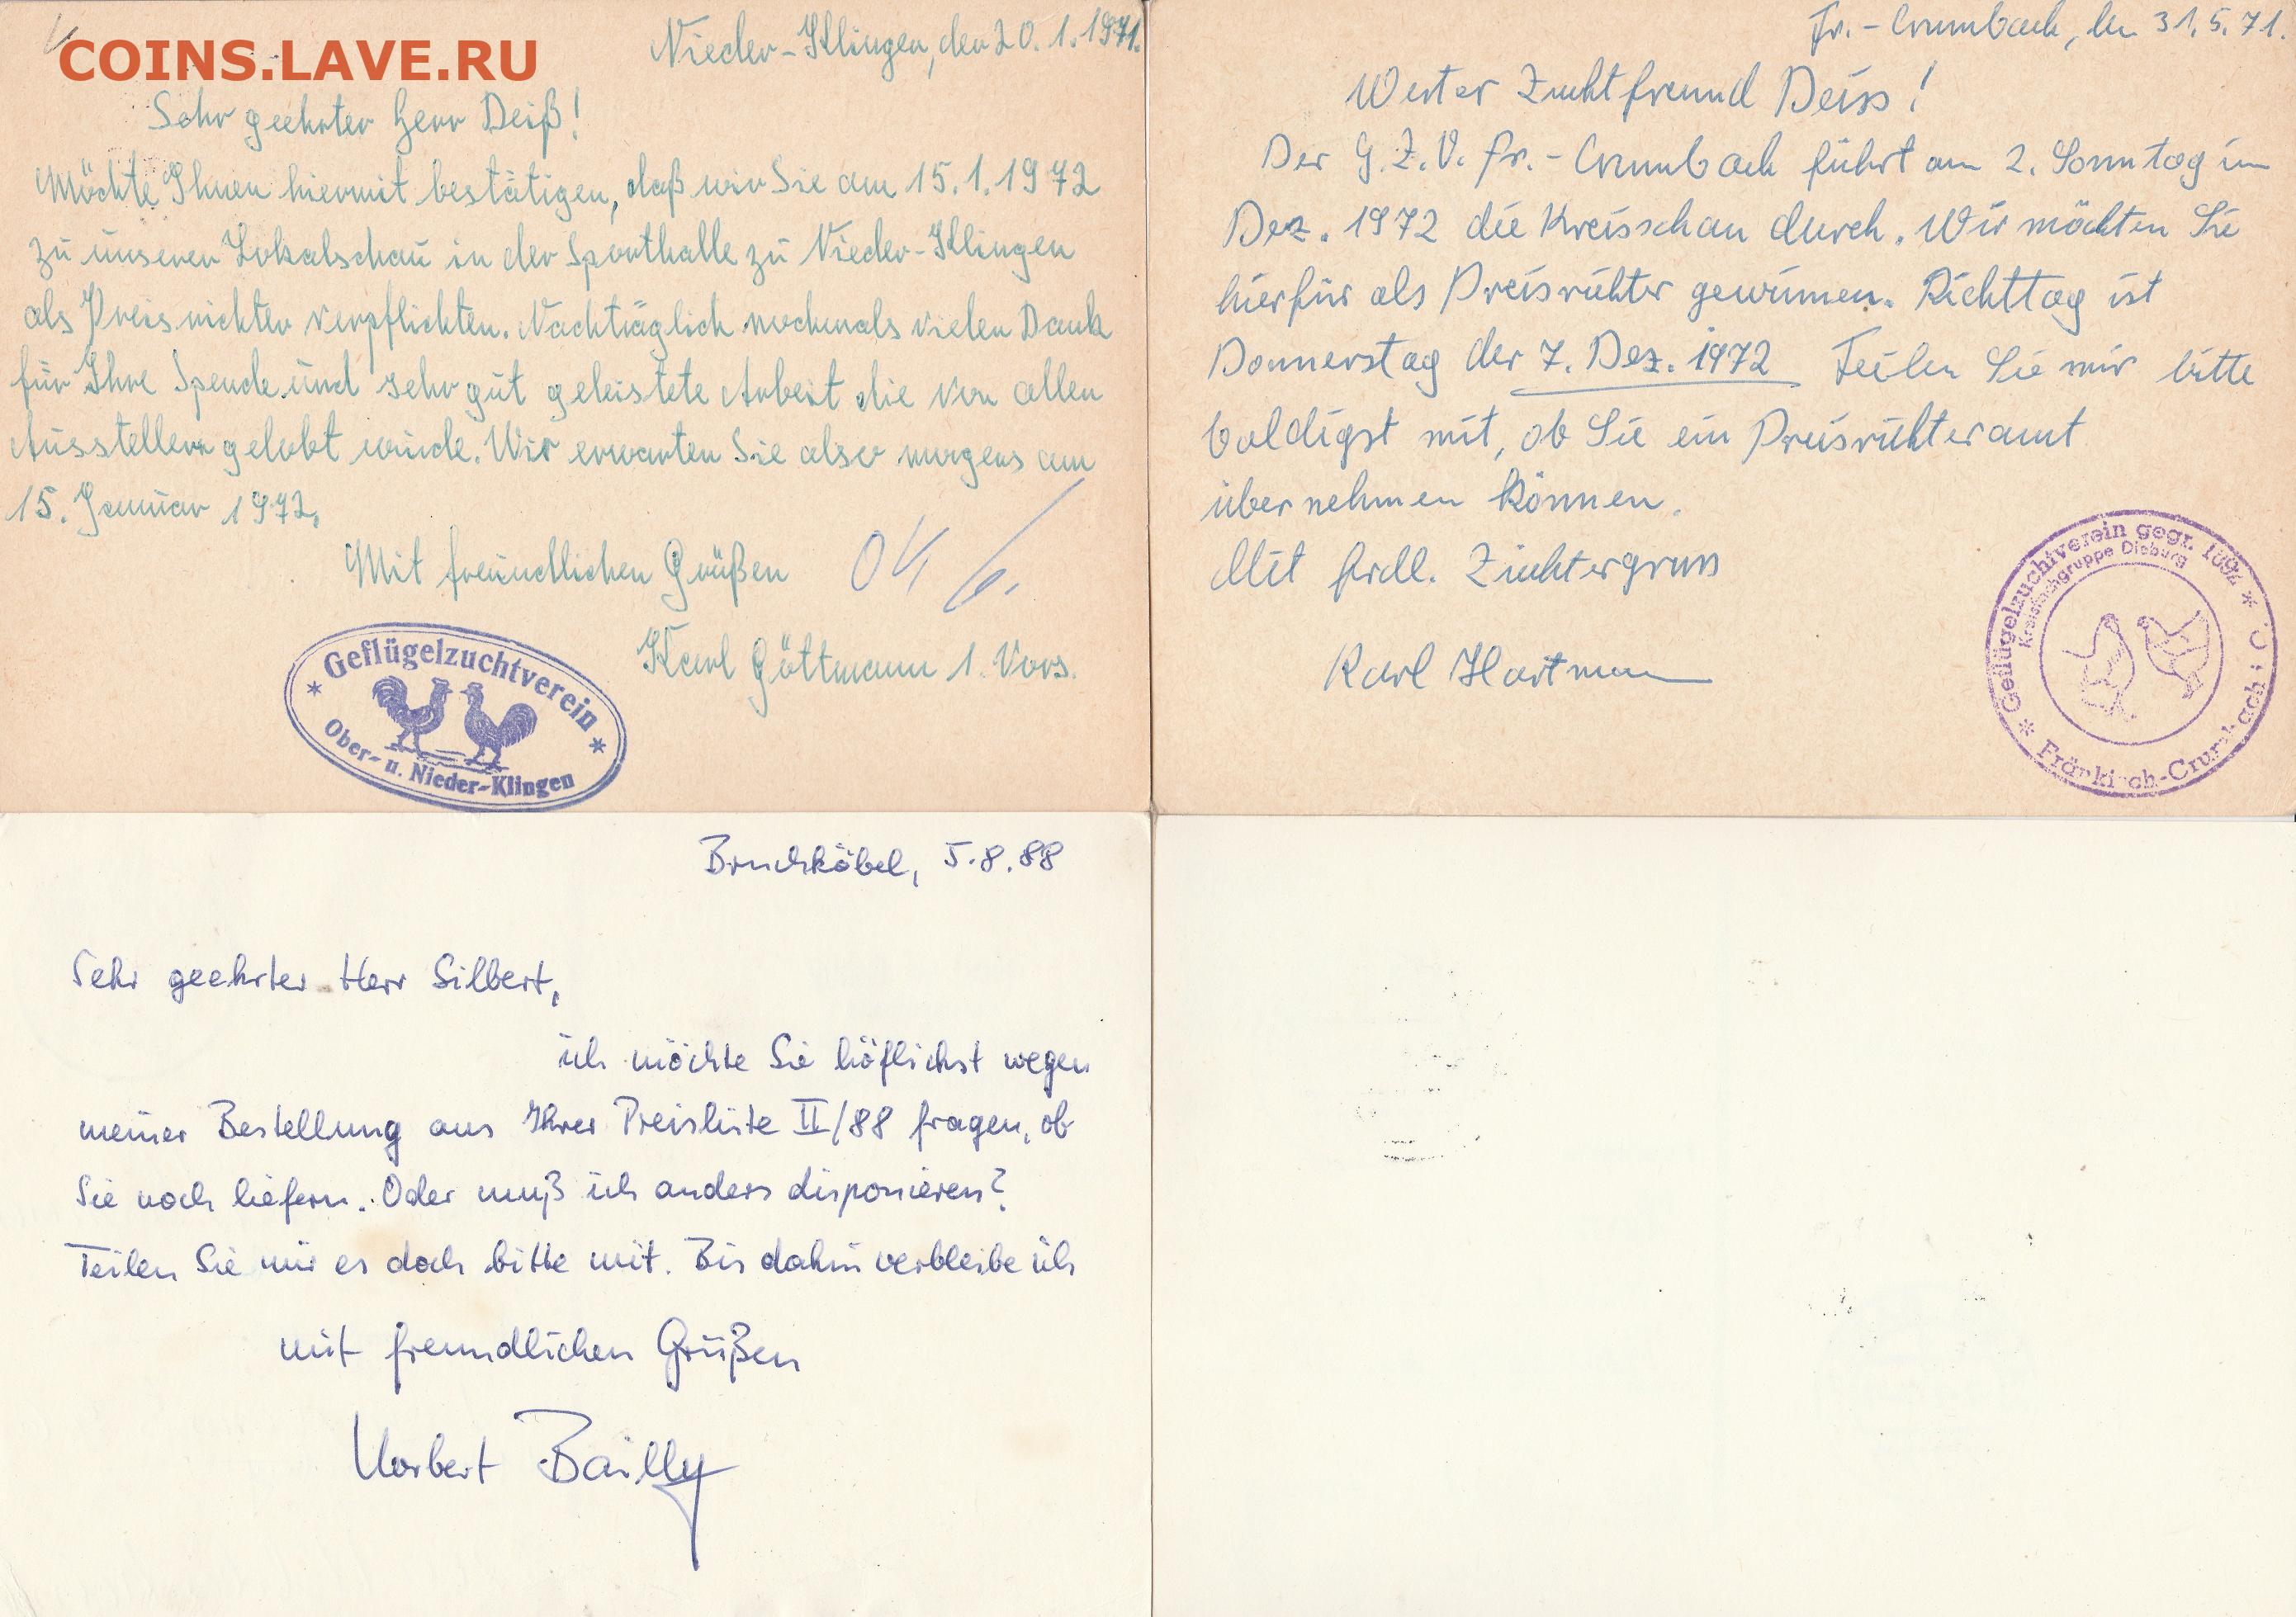 COINS.LAVE.RU
Nieder-Klingen, den 20.1.1971.
Sehr geehrter Herr Deiß!
Möchte Ihnen hiermit bestätigen, daß wir Sie am 15.1.1972
zu unserer Lokalschau in der Sporthalle zu Nieder-Klingen
als Preisrichter verpflichten. Nachträglich nochmals vielen Dank
für Ihre Spende und sehr gut geleistete Arbeit die von allen
Ausstellern gelobt wurde. Wir erwarten Sie also morgens am
15. Januar 1972.
Mit freundlichen Grüßen
Karl Göttmann 1. Vors.
Geflügelzuchtverein
Ober- u. Nieder-Klingen
Fr.-Crumbach, den 31.5.71.
Werter Zuchtfreund Deiss!
Der G.Z.V. Fr.-Crumbach führt am 2. Sonntag im
Dez. 1972 die Kreisschau durch. Wir möchten Sie
hierfür als Preisrichter gewinnen. Richttag ist
Donnerstag der 7. Dez. 1972 Teilen Sie mir bitte
baldigst mit, ob Sie ein Preisrichteramt
übernehmen können.
Mit frdl. Züchtergruss
Karl Hartmann
Geflügelzuchtverein gegr. 1892
Kreisfachgruppe Dieburg
Fränkisch-Crumbach i. O.
Bruchköbel, 5.8.88
Sehr geehrter Herr Silbert,
ich möchte Sie höflichst wegen
meiner Bestellung aus Ihrer Preisliste II/88 fragen, ob
Sie noch liefern. Oder muß ich anders disponieren?
Teilen Sie mir es doch bitte mit. Bis dahin verbleibe ich
mit freundlichen Grüßen
Norbert Bailly